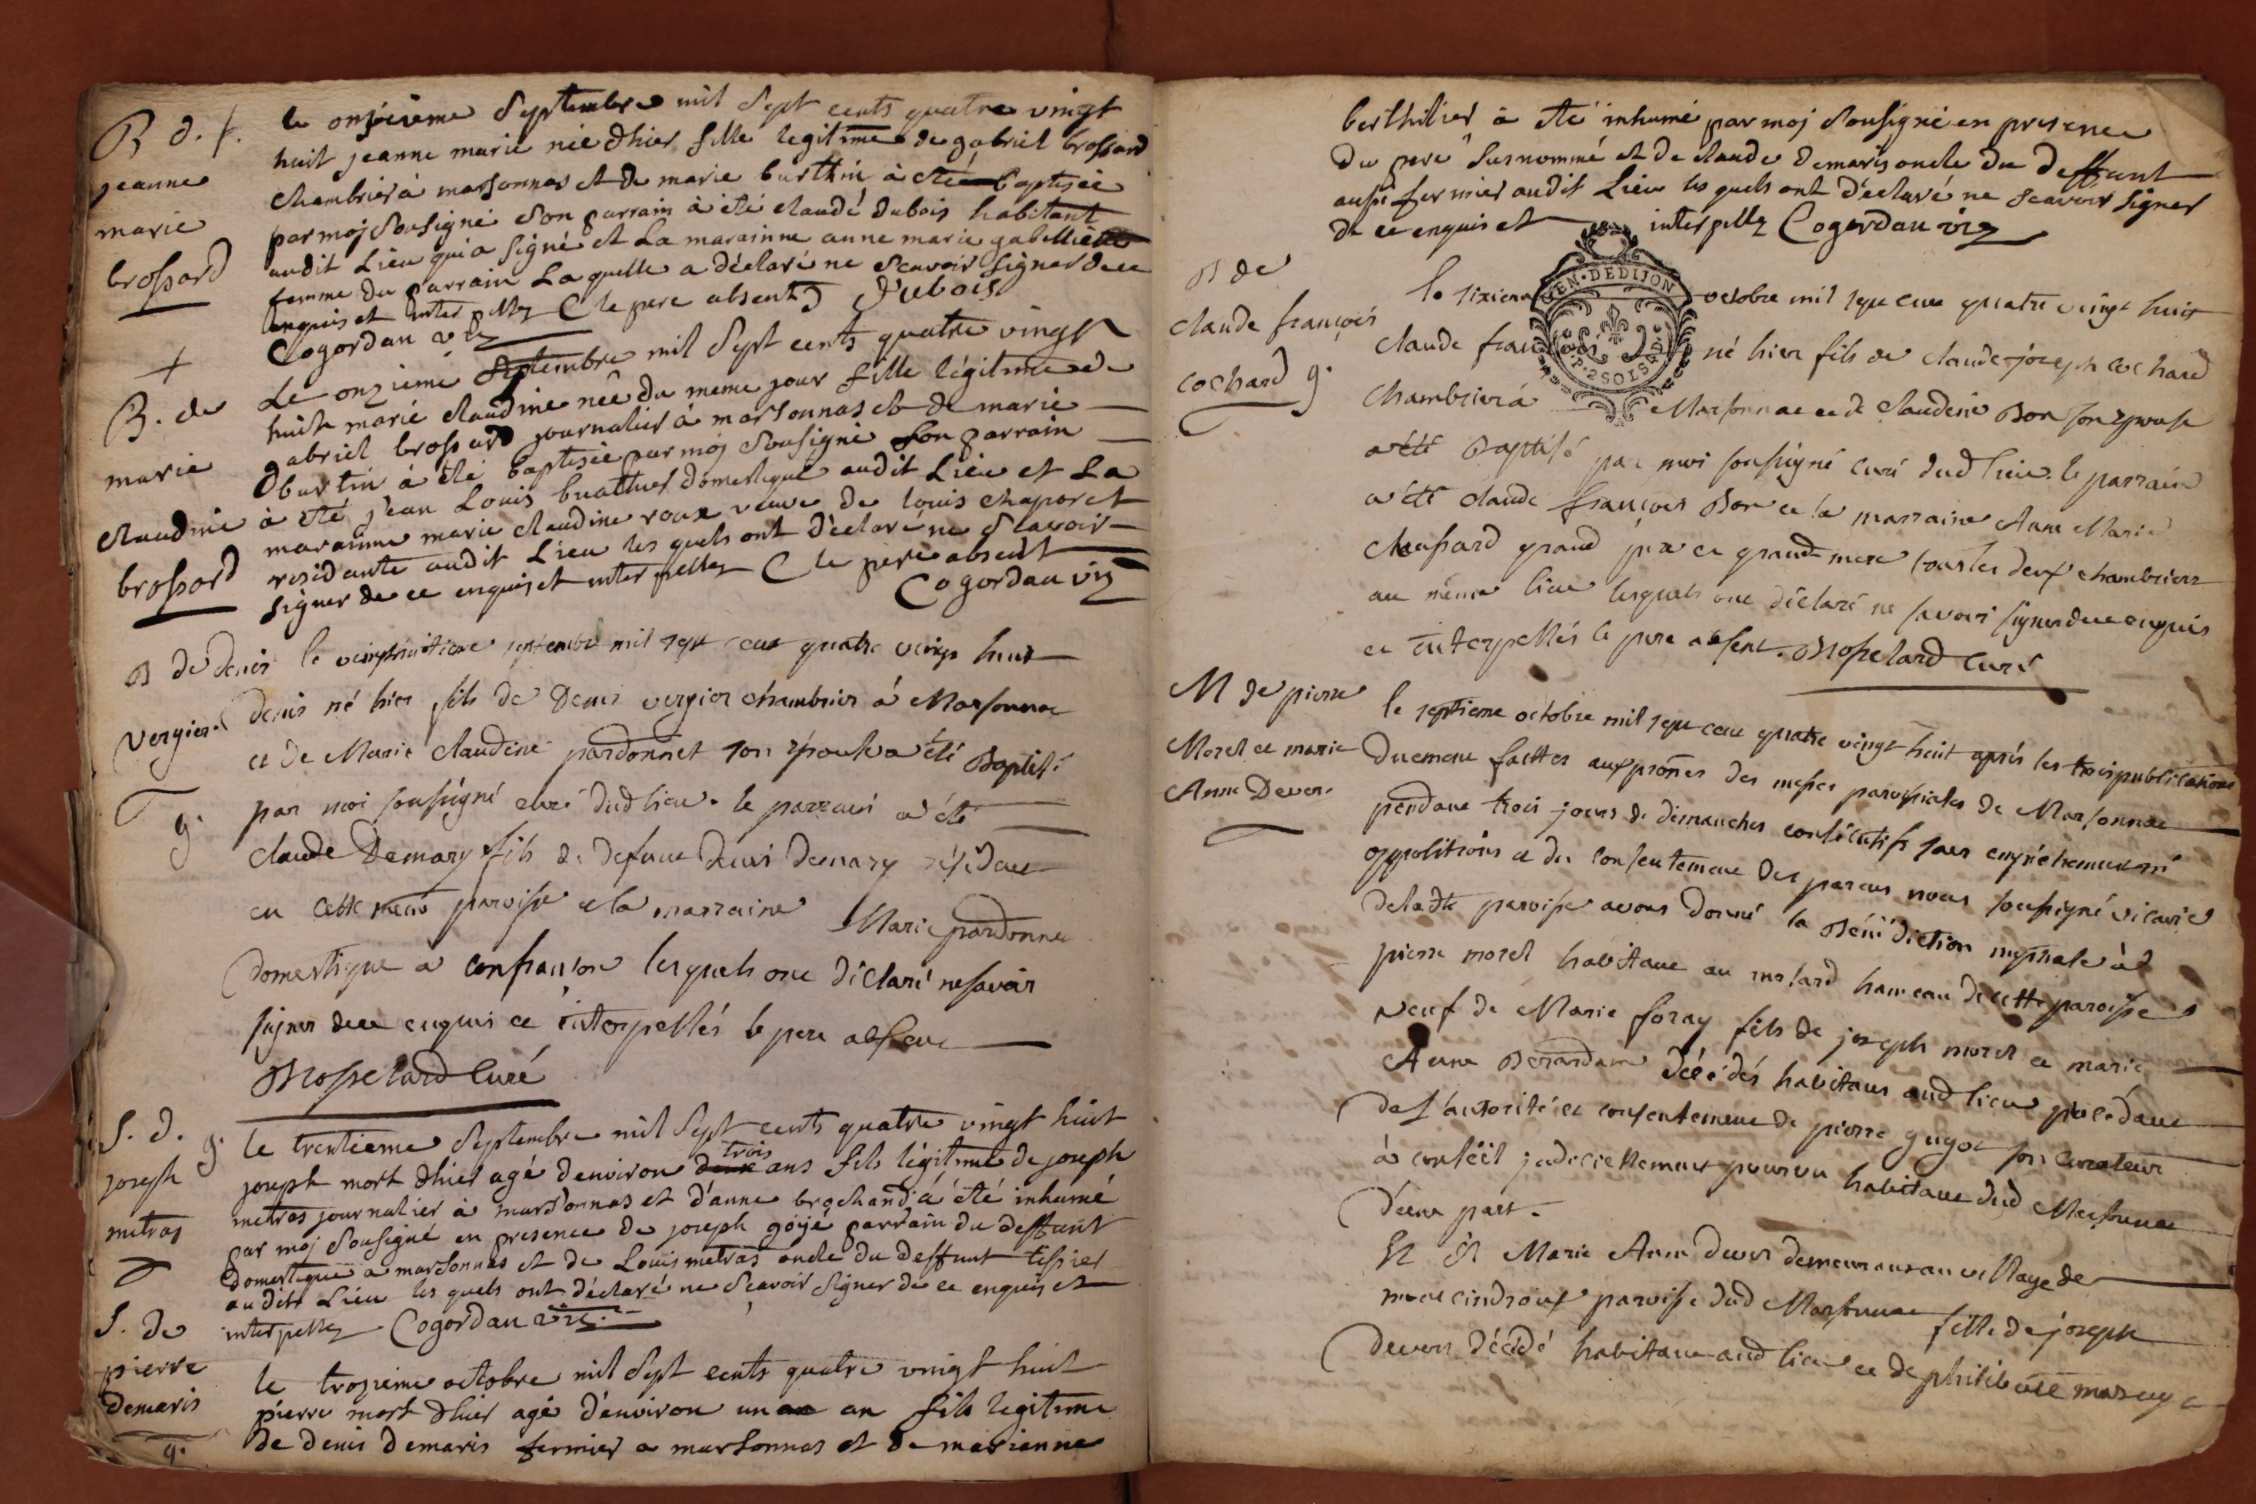 B d. f.
jeanne
marie
brossard
le onzieme septembre mil sept cents quatre vingt
huit jeanne marie née d'hier fille legitime de gabriel brossard
chambrier à marsonnas et de marie burthin à eté baptisée
par moj sousigné son parrain à été claude dubois habitant
audit Lieu qui a signé et La marainne anne marie
femme du parrain Laquelle a déclaré ne scavoir signer de ce
enquis et interpellez C le pere absent Dubois
Cogordan viz
+
B. de
marie
claudine
brossard
Le onzieme septembre mil sept cents quatre vingt
huit marie claudine née du meme jour fille légitime de
gabriel brossard journalier à marsonnas et de marie
burtin à été baptisée par moj sousigné son parrain
à eté jean Louis buathier domestique audit Lieu et La
marainne marie claudine roux veuve de louis chaporet
residante audit Lieu les quels ont déclaré ne scavoir
signer de ce enquis et interpellez C le pere absent
Cogordan viz
B de denis
vergier
g.
le vingthuitieme septembre mil sept cent quatre vingt huit
denis né hier fils de denis vergier chambrier à Marsonnas
et de Marie claudine pardonnet son épouse a été Baptisé
par moi soussigné curé dud lieu. le parrain a été
claude Demary fils de defunt denis demary résidant
en cette meme paroisse et la marraine Marie pardonnet
domestique a confrançon lesquels ont déclaré ne savoir
signer de ce enquis et interpellés le pere absent
Brosselard Curé
S. d. g.
joseph
metras
le trentieme septembre mil sept cents quatre vingt huit
joseph mort d'hier agé d'environ deux trois ans fils légitime de joseph
metras journalier à marsonnas et d'anne brochand à été inhumé
par moj sousigné en presence de joseph goyé parrain du deffunt
domestique a marsonnas et de Louis metras oncle du deffunt tissier
audit Lieu les quels ont déclaré ne scavoir signer de ce enquis et
interpellez Cogordan viz
S. de
pierre
demaris
g.
le trozieme octobre mil sept cents quatre vingt huit
pierre mort d'hier agé d'environ un an fils legitime
de denis demaris fermier a marsonnas et de marianne
berthilier à été inhumé par moj sousigné en presence
du pere susnommé et de claude demaris oncle du deffunt
aussi fermier audit Lieu les quels ont déclaré ne scavoir signer
de ce enquis et interpellez Cogordan viz
GEN. DE DIJON
P. 2 SOLS
B de
claude françois
cochard g.
le sixieme octobre mil sept cent quatre vingt huit
claude françois né hier fils de claude joseph cochard
chambrier à Marsonnas et de claudine Bon son epouse
a été Baptisé par moi soussigné curé dud lieu. le parrain
a été claude françois Bon et la marraine Anne Marie
chaussard grand pere et grand mere tous les deux chambriers
au même lieu lesquels ont déclaré ne savoir signer de ce enquis
et interpellés le pere absent. Brosselard Curé
M de pierre
Morel et marie
Anne Devers
le septieme octobre mil sept cent quatre vingt huit après les trois publications
duement faittes aux prônes des messes paroissiales de Marsonnas
pendant trois jours de dimanches consécutifs sans empêchement ni
oppositions et du consentement des parens nous soussigné vicaire
de la dte paroisse avons donné la Bénédiction nuptiale à
pierre morel habitant au molard hameau de cette paroisse
veuf de Marie foray fils de joseph morel et marie
Anne Berardan décédés habitans aud lieu procédant
de l'autorité et consentement de pierre guyot son curateur
à conseil judiciellement pourvu habitant dud Marsonnas
d'une part.
Et Marie Anne devers demeurant au village de
paroisse dud Marsonnas fille de joseph
devers décédé habitant aud lieu et de philiberte